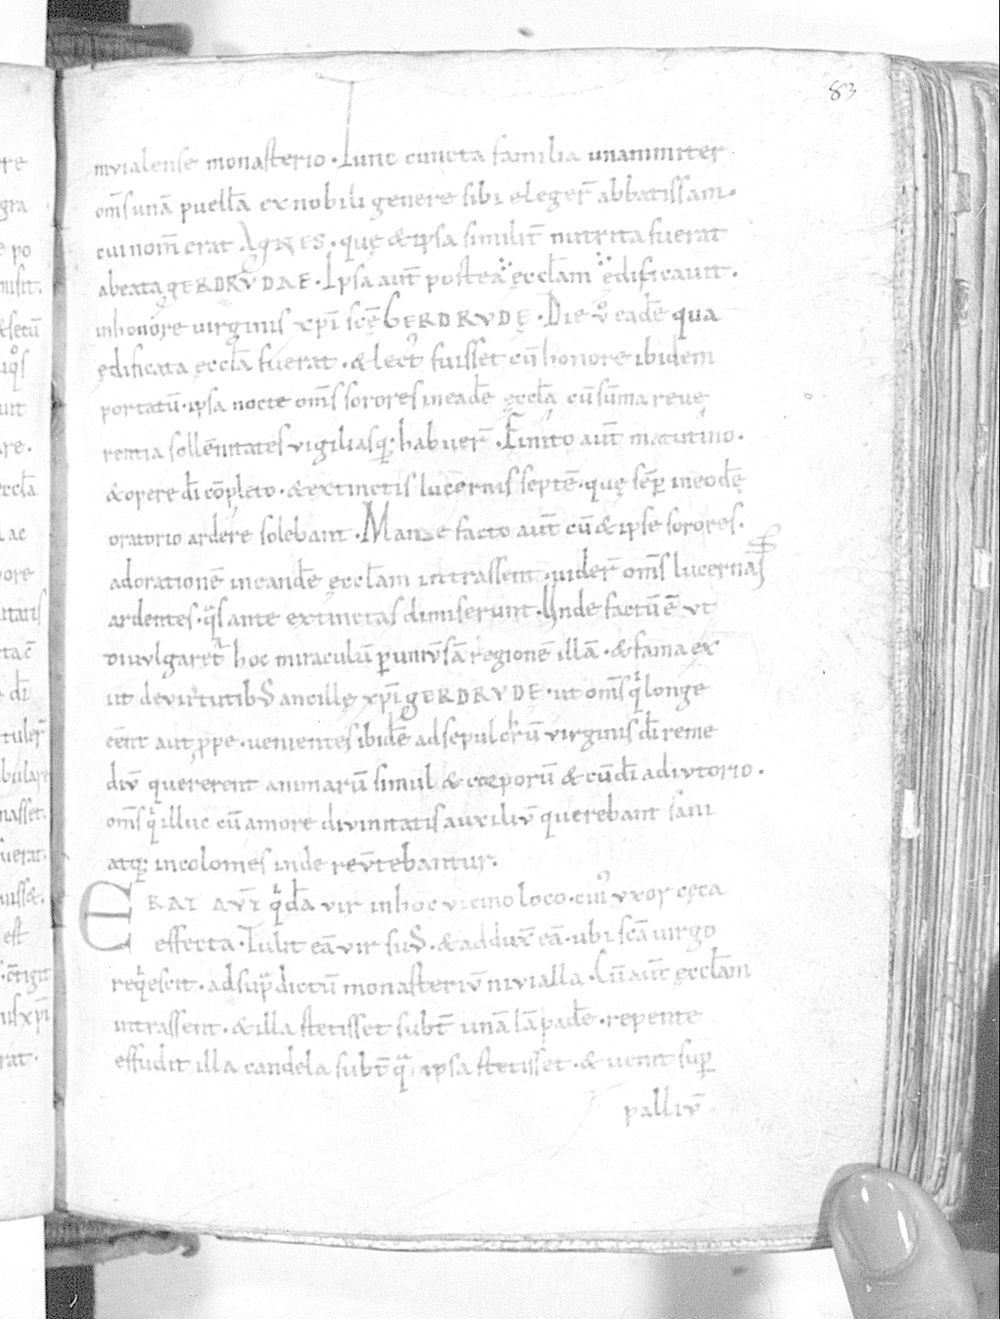 83
nivialense monasterio. Tunc cuncta familia unanimiter
om̄s unā puellā ex nobili genere sibi eleger̄ abbatissam.
cui nom̄ erat AGNES. quę & ipsa similit̄ nutrita fuerat
a beata GERDRVDAE. Ipsa aut̄ postea ęccl̄am ędificauit.
in honore uirginis xp̄i sc̄ę GERDRVDĘ. Die v̊ eadē qua
ędificata ęccl̄a fuerat. & lect᷒ fuisset cū honore ibidem
portatū. ipsa nocte om̄s sorores in eadē ęccl̄a cū sūma reue
rentia sollēnitates vigiliasq; habuer̄. Finito aut̄ matutino.
& opere dī cōpleto. & extinctis lucernis septē. quę sēp in eodē
oratorio ardere solebant. Mane facto aut̄ cū & ipse sorores.
adorationē in eandē ęccl̄am intrassent. uider̄ om̄s lucernas
ardentes. q̄s ante extinctas dimiserunt. Unde factū ē vt
divulgaret᷒ hoc miraculū p uniuersā regionē illā. & fama ex
iit de virtutib; ancillę xp̄i GERDRVDE. ut om̄s q̄ longe
eēnt aut ꝓpe. uenientes ibidē ad sepulcrū virginis dī reme
diū quererent animarū simul & corporū & cū dī adiutorio.
om̄s q̄ illuc cū amore divinitatis auxiliū querebant sani
atq; incolomes inde reūtebantur.
ERAT AVT̄ q̄dā vir in hoc vicino loco. cui᷒ vxor cęca
effecta. Tulit eā vir suus. & adduxt̄ eā. ubi sc̄a uirgo
req̄escit. ad sup̄dictū monasteriū nivialla. Cū aut̄ ęccl̄am
intrassent. & illa stetisset subt᷒ unā lāpadē. repente
effudit illa candela subt᷒ q̄ ipsa stetisset. & uenit sup̄
palliū